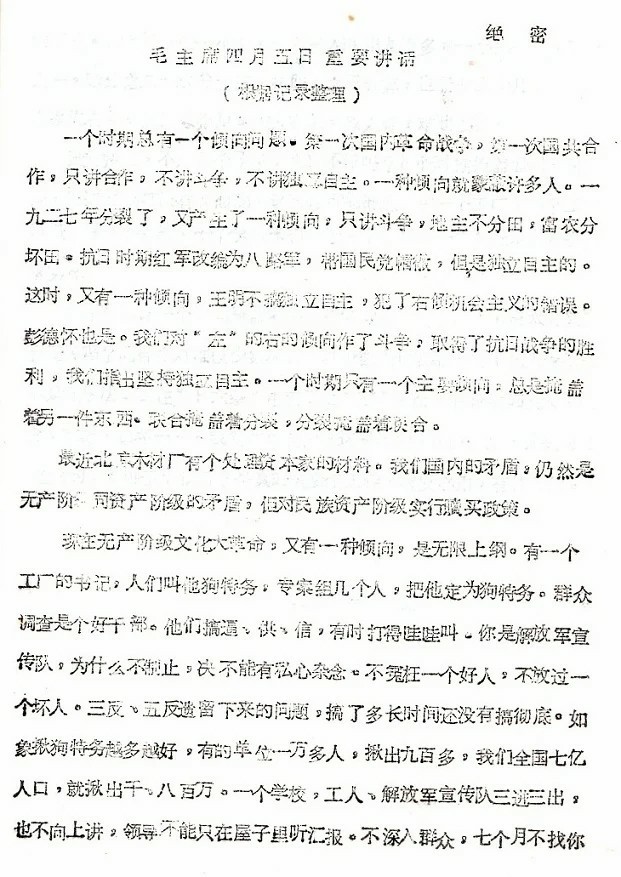 绝 密
毛主席四月五日重要讲话
（根据记录整理）
一个时期总有一个倾向问题。第一次国内革命战争，第一次国共合
作，只讲合作，不讲斗争，不讲独立自主。一种倾向就蒙蔽许多人。一
九二七年分裂了，又产生了一种倾向，只讲斗争，地主不分田，富农分
坏田。抗日时期红军改编为八路军，带国民党帽徽，但是独立自主的。
这时，又有一种倾向，王明不搞独立自主，犯了右倾机会主义的错误。
彭德怀也是。我们对“左”的右的倾向作了斗争，取得了抗日战争的胜
利，我们指出坚持独立自主。一个时期只有一个主要倾向，总是掩盖
着另一件东西。联合掩盖着分裂，分裂掩盖着联合。
最近北京木材厂有个处理资本家的材料。我们国内的矛盾，仍然是
无产阶 同资产阶级的矛盾，但对民族资产阶级实行赎买政策。
现在无产阶级文化大革命，又有一种倾向，是无限上纲。有一个
工厂的书记，人们叫他狗特务，专案组几个人，把他定为狗特务。群众
调查是个好干部。他们搞逼、供、信，有时打得哇哇叫。你是解放军宣
传队，为什么不制止，决不能有私心杂念。不冤枉一个好人，不放过一
个坏人。三反、五反遗留下来的问题，搞了多长时间还没有搞彻底。如
象揪狗特务越多越好，有的单位一万多人，揪出九百多，我们全国七亿
人口，就揪出千、八百万。一个学校，工人、解放军宣传队三进三出，
也不向上讲，领导不能只在屋子里听汇报。不深入群众，七个月不找你